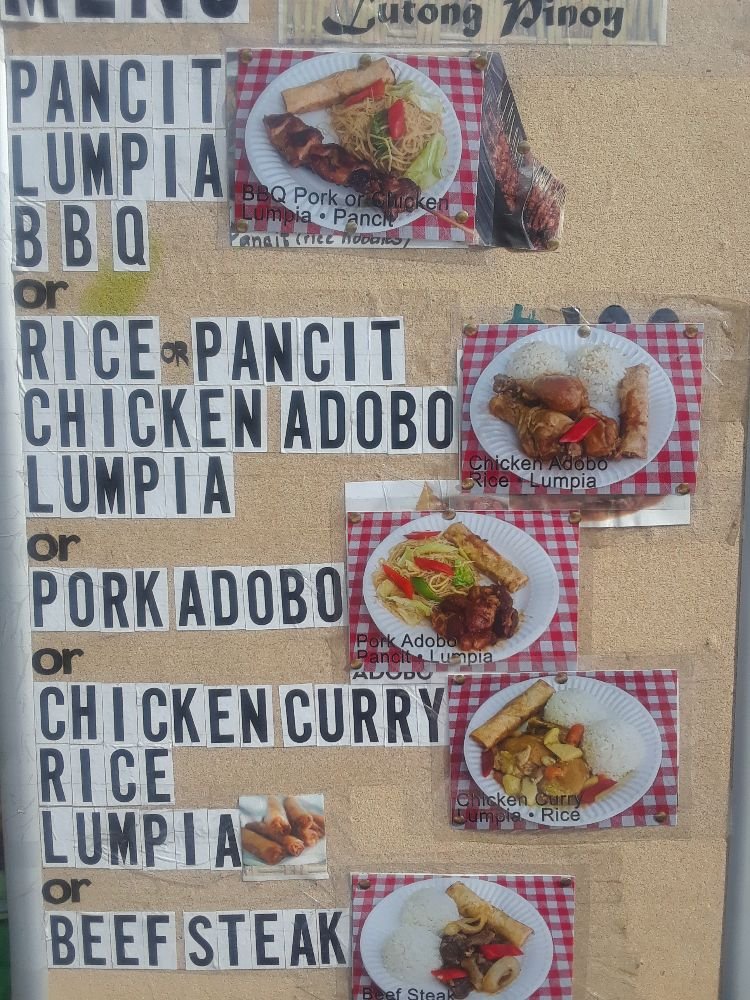 MENU
Lutong Pinoy
PANCIT
LUMPIA
BBQ
BBQ Pork or Chicken
Lumpia • Pancit
Pancit (rice noodles)
or
RICE OR PANCIT
CHICKEN ADOBO
LUMPIA
Chicken Adobo
Rice • Lumpia
or
PORK ADOBO
Pork Adobo
Pancit • Lumpia
ADOBO
or
CHICKEN CURRY
RICE
LUMPIA
Chicken Curry
Lumpia • Rice
or
BEEF STEAK
Beef Steak